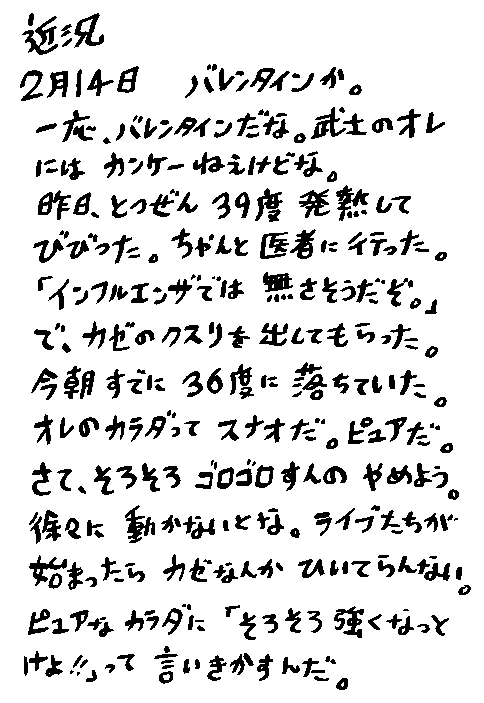 近況
2月14日　バレンタインか。
一応、バレンタインだな。武士のオレ
には カンケーねえけどな。
昨日、とつぜん 39度 発熱して
びびった。ちゃんと 医者に行った。
「インフルエンザでは 無さそうだぞ。」
で、カゼのクスリを 出してもらった。
今朝 すでに 36度に 落ちていた。
オレのカラダって スナオだ。ピュアだ。
さて、そろそろ ゴロゴロすんの やめよう。
徐々に 動かないとな。ライブたちが
始まったら カゼなんか ひいてらんない。
ピュアな カラダに「そろそろ 強くなっと
けよ!!」って 言いきかすんだ。